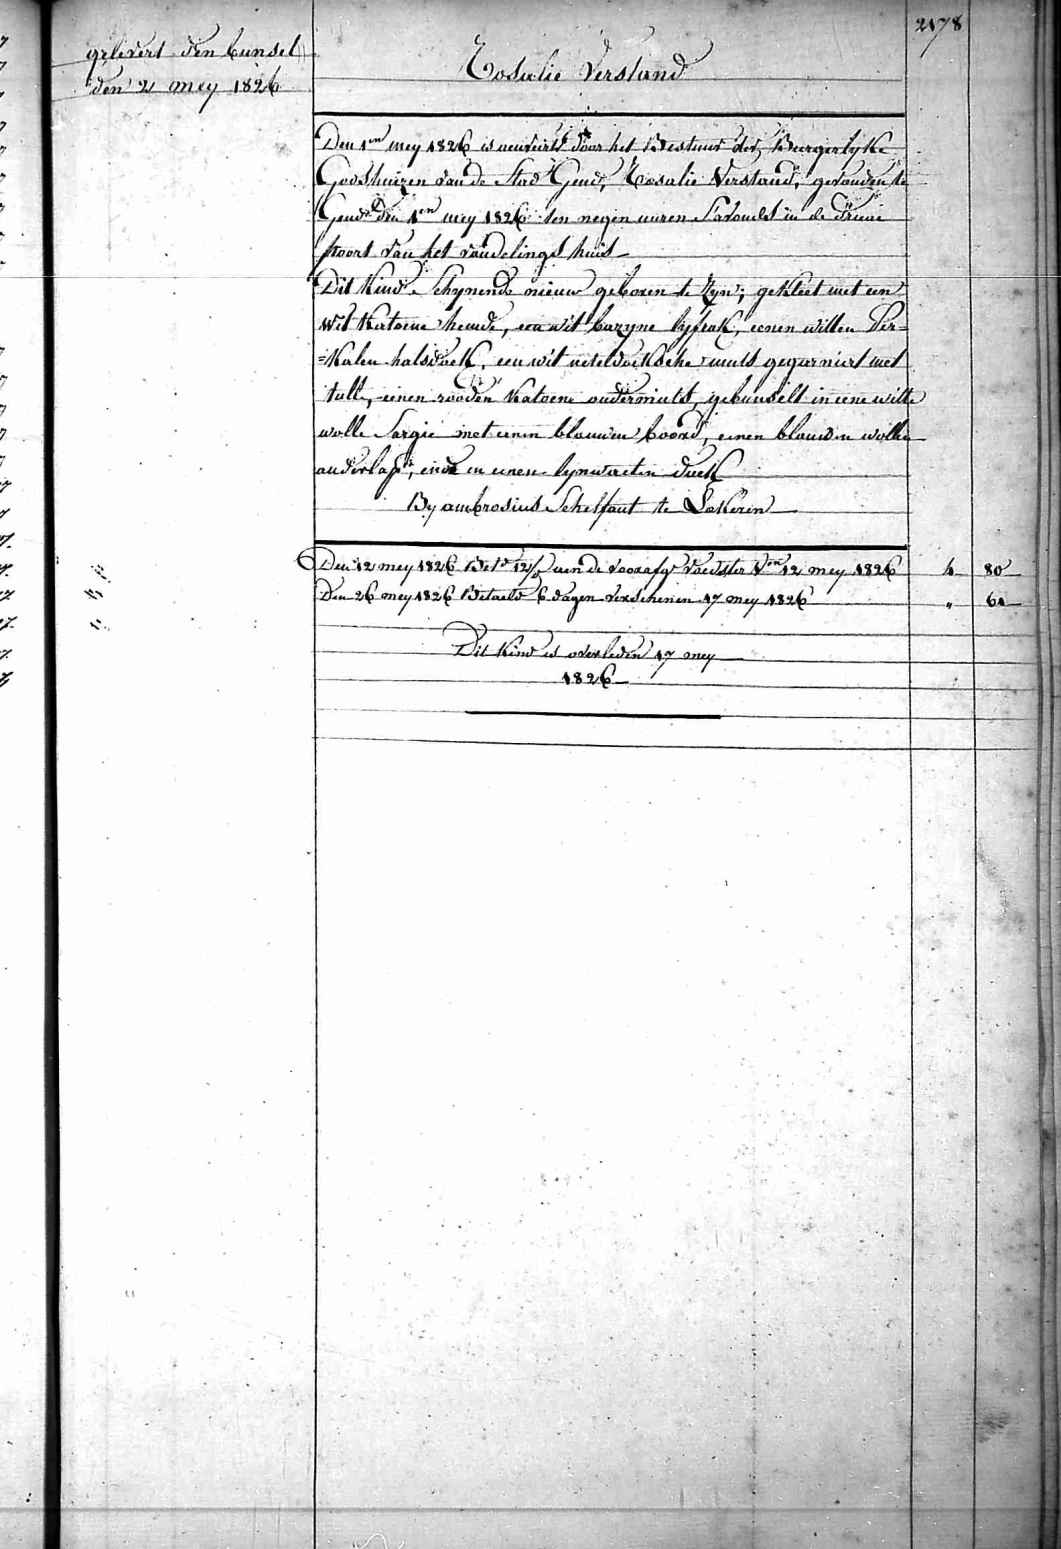 2178
gelevert den bunsel
den 2 mey 1826
Rosalie Verstand
Den 1en mey 1826 is aenveirt door het Bestuur der Burgerlyke
Godshuizen van de Stad Gend, Rosalie Verstand, gevonden te
Gend den 1en mey 1826 ten negen uuren S'avonds in de Trune
poort van het vondelings huis
Dit Kind Schynende nieuw geboren te Zyn; gekleet met een
wit Katoene hemde, een wit bazyne lyfrak, eenen witten Per=
=Kalen halsdoeck, een wit neteldoeksche muts gegarniert met
tulle, eenen rooden Katoene ondermuts, gebunselt in eene witte
wolle Sargie met eenen blauwen boord, eenen blauwen wolle
anderlap, ende en eenen lynwaeten doeck
By ambrosius Schelfaut te Lokeren
Den 12 mey 1826 Bet.d 12/ aen de voorafg. voedster Von 12 mey 1826 4 80
Den 26 mey 1826 Betaeld 6 dagen verschenen 17 mey 1826 " 61
Dit Kind is overleden 17 mey
1826